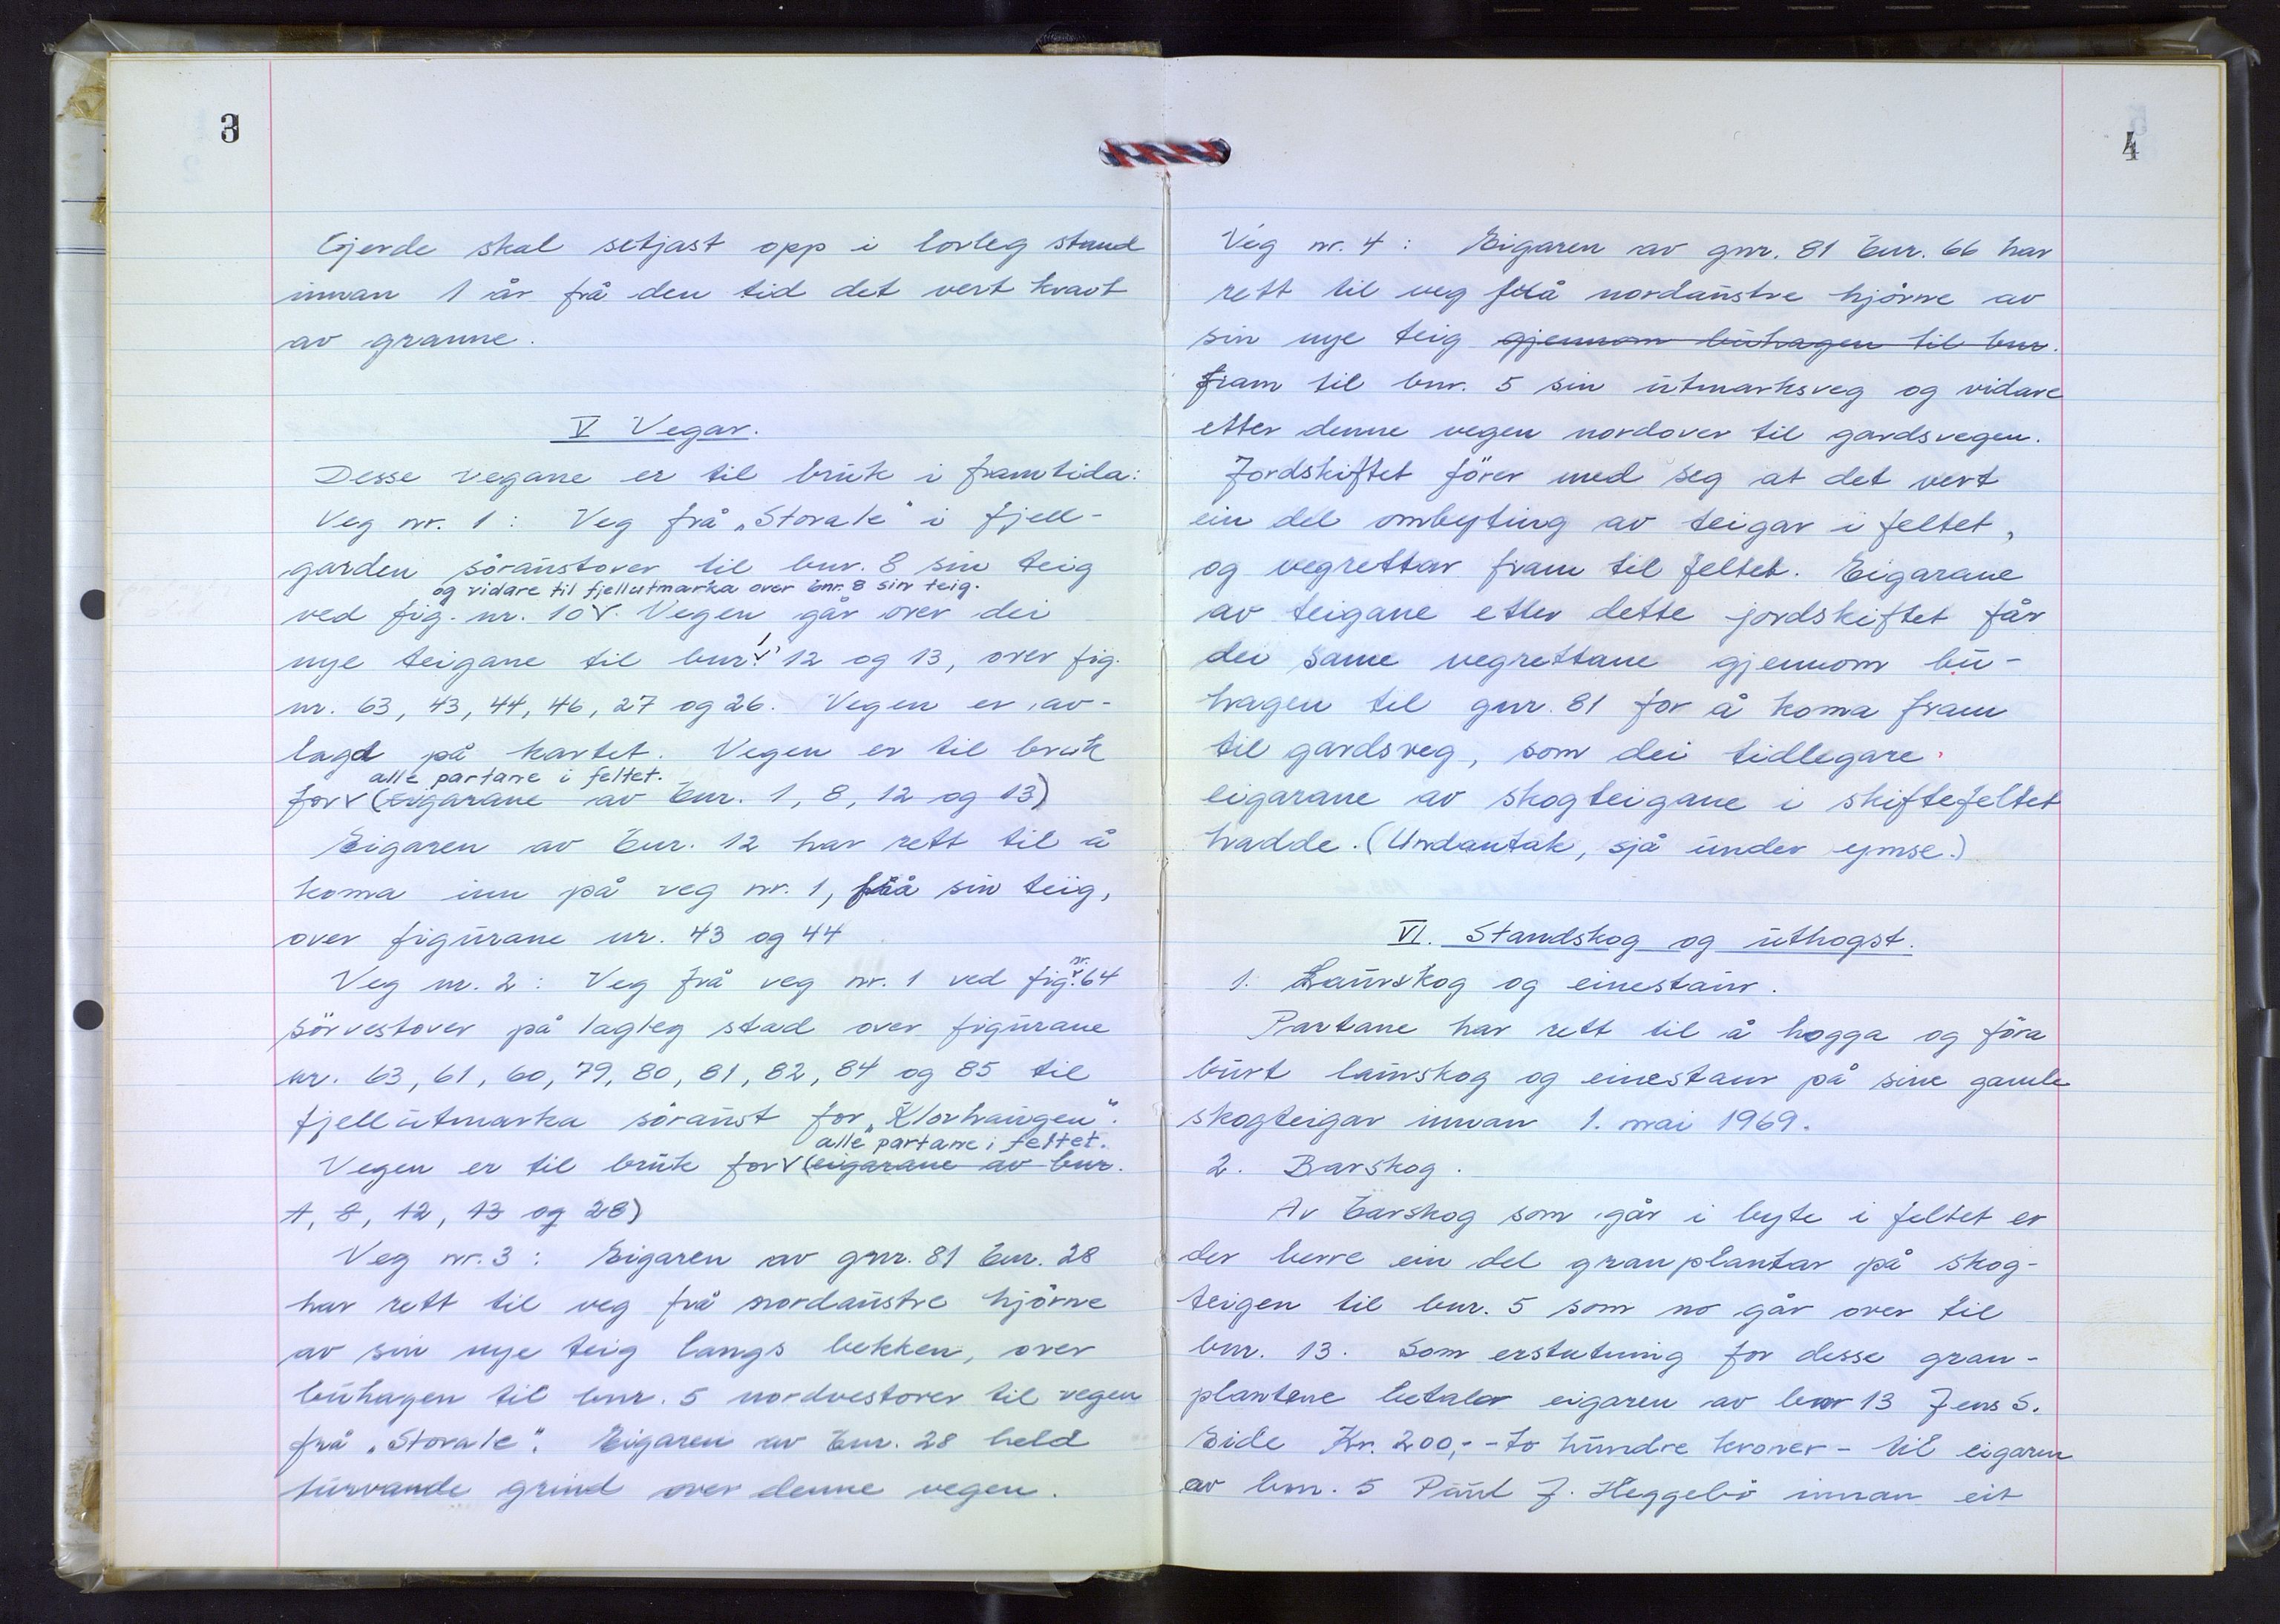 3
Gjerde skal setjast opp i lovleg stand
innan 1 år frå den tid det vert kravt
av granne.
V Vegar.
Desse vegane er til bruk i framtida:
Veg nr. 1: Veg frå „Storale" i fjell-
garden söraustover til bnr. 8 sin teig
og vidare til fjellutmarka over bnr. 8 sin teig.
ved fig. nr. 10 v. Vegen går over dei
nye teigane til bnr. 1, 12 og 13, over fig.
nr. 63, 43, 44, 46, 27 og 26. Vegen er av-
lagd på kartet. Vegen er til bruk
alle partane i feltet.
for v (eigarane av bnr. 1, 8, 12 og 13)
Eigaren av bnr. 12 har rett til å
koma inn på veg nr. 1, frå sin teig,
over figurane nr. 43 og 44
Veg nr. 2: Veg frå veg nr. 1 ved fig. nr. 64
sörvestover på lagleg stad over figurane
nr. 63, 61, 60, 79, 80, 81, 82, 84 og 85 til
fjellutmarka söraust for „Klorhaugen".
alle partane i feltet.
Vegen er til bruk for v (eigarane av bnr.
1, 8, 12, 13 og 28)
Veg nr. 3: Eigaren av gnr. 81 bnr. 28
har rett til veg frå nordaustre hjörne
av sin nye teig langs bekken, over
buhagen til bnr. 5 nordvestover til vegen
frå „Storale". Eigaren av bnr. 28 held
turvande grind over denne vegen.
4
Veg nr. 4: Eigaren av gnr. 81 bnr. 66 har
rett til veg frå nordaustre hjörne av
sin nye teig gjennom buhagen til bnr.
fram til bnr. 5 sin utmarksveg og vidare
etter denne vegen nordover til gardsvegen.
Jordskiftet förer med seg at det vert
ein del ombyting av teigar i feltet,
og vegrettar fram til feltet. Eigarane
av teigane etter dette jordskiftet får
dei same vegrettane gjennom bu-
hagen til gnr. 81 for å koma fram
til gardsveg, som dei tidlegare
eigarane av skogteigane i skiftefeltet
hadde. (Undantak, sjå under ymse.)
VI. Standskog og uthogst.
1. Lauvskog og einestaur.
Partane har rett til å hogga og föra
burt lauvskog og einestaur på sine gamle
skogteigar innan 1. mai 1969.
2. Barskog.
Av barskog som går i byte i feltet er
der berre ein del granplantar på skog-
teigen til bnr. 5 som no går over til
bnr. 13. Som erstatning for desse gran-
plantene betaler eigaren av bnr 13 Jens S.
Eide Kr. 200,- - to hundre kroner - til eigaren
av bnr. 5 Paul J. Heggebö innan eit